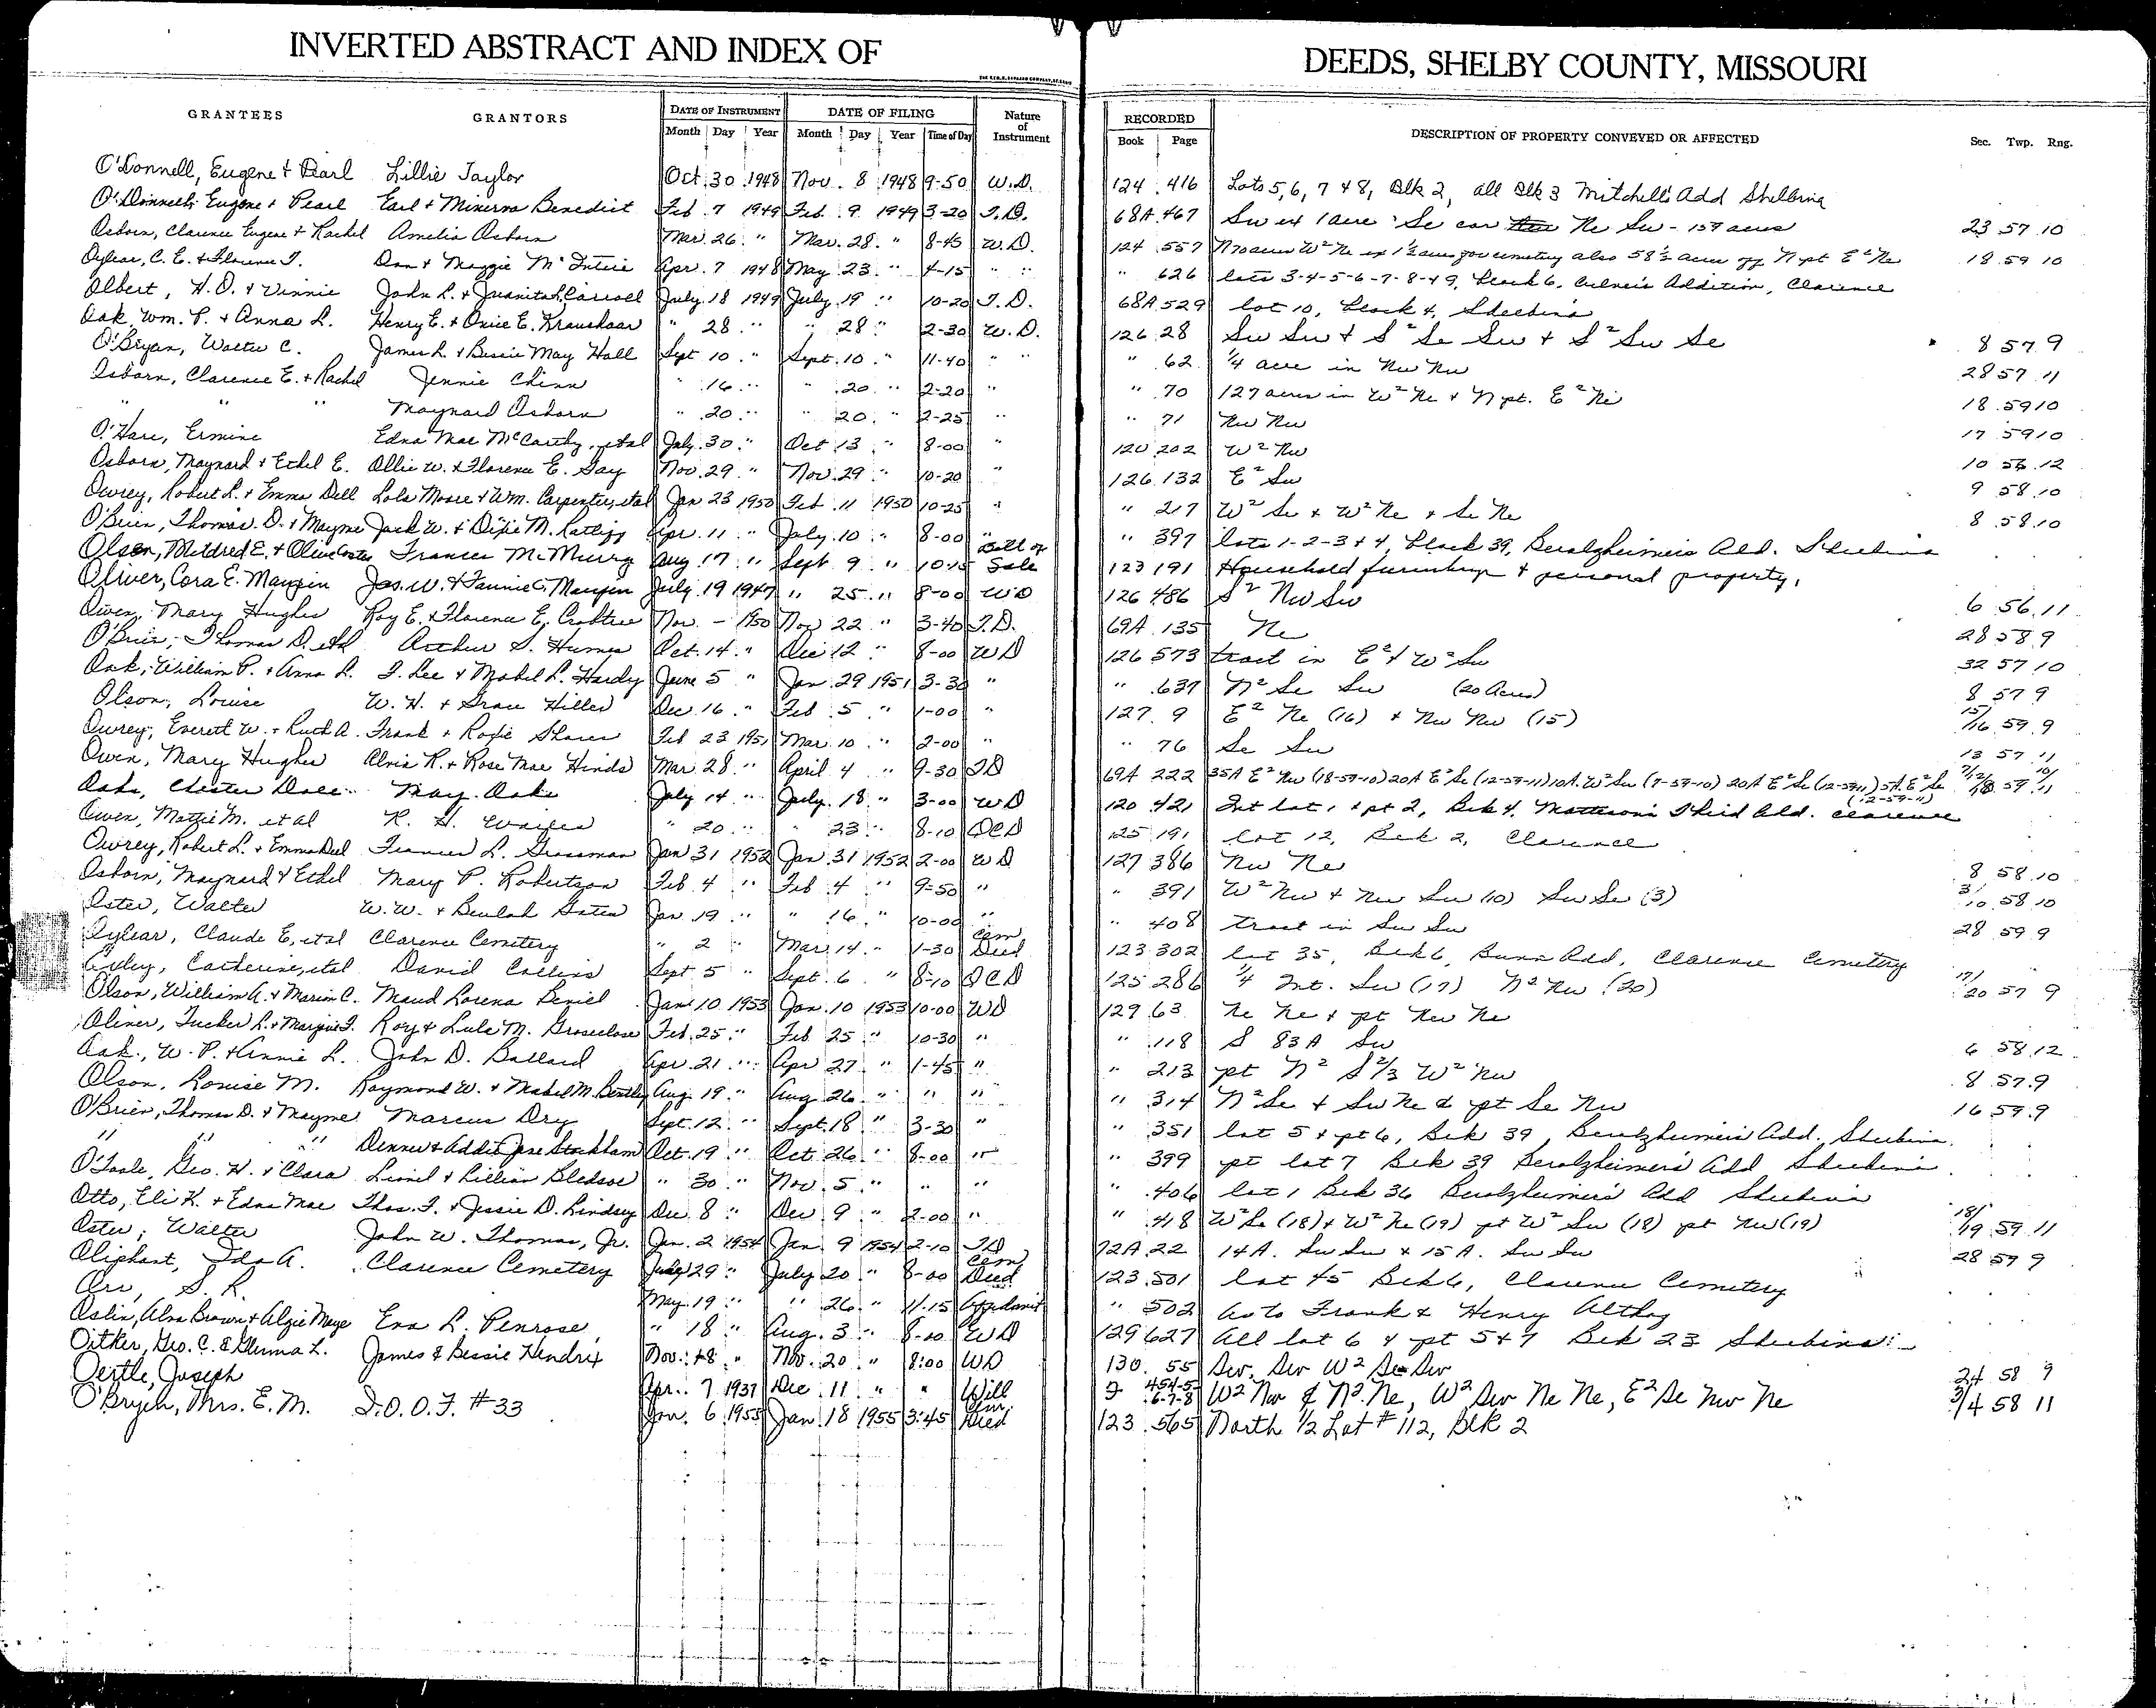 INVERTED ABSTRACT AND INDEX OF DEEDS, SHELBY COUNTY, MISSOURI
GRANTEES GRANTORS DATE OF INSTRUMENT DATE OF FILING Nature of Instrument RECORDED DESCRIPTION OF PROPERTY CONVEYED OR AFFECTED Sec. Twp. Rng.
Month Day Year Month Day Year Time of Day Book Page
O'Donnell, Eugene + Pearl Lillie Taylor Oct. 30 1948 Nov. 8 1948 9-50 W.D. 124 416 Lots 5, 6, 7 + 8, Blk 2, all Blk 3 Mitchell's Add Shelbina
O'Donnell, Eugene + Pearl Earl + Minerva Benedict Feb. 7 1949 Feb. 9 1949 3-20 T.D. 68A 467 Sw ex 1 acre Se cor Ne Sw - 159 acres 23 57 10
Osborn, Clarence Eugene + Rachel Amelia Osborn Mar. 26 " Mar. 28 " 8-45 W.D. 124 557 N 70 acres W² Ne ex 1½ acres for cemetery also 58½ acres off N pt E² Ne 18 59 10
Oylear, C. E. + Florence T. Dan + Maggie McIntire Apr. 7 1948 May 23 " 4-15 " " " 626 lots 3-4-5-6-7-8-+9, block 6, Addition, Clarence
Olbert, H. O. + Vinnie John L. + Juanita L. Carroll July 18 1949 July 19 " 10-20 T.D. 68A 529 lot 10, block 4, Shelbina
Oak, Wm. P. + Anna L. Henry E. + Onie E. Kraushaar " 28 " " 28 " 2-30 W.D. 126 28 Sw Sw + S² Se Sw + S² Sw Se 8 57 9
O'Bryan, Walter C. James R. + Bessie May Hall Sept 10 " Sept. 10 " 11-40 " " " 62 ¼ acre in Nw Nw 28 57 11
Osborn, Clarence E. + Rachel Jennie Chinn " 16 " " 20 " 2-20 " " 70 127 acres in W² Ne + N pt. E² Ne 18 59 10
" " " Maynard Osborn " 20 " " 20 " 2-25 " " 71 Nw Nw 17 59 10
O'Hare, Ermine Edna Mae McCarthy, etal July 30 " Oct 13 " 8-00 " 120 202 W² Nw 10 56 12
Osborn, Maynard + Ethel E. Ollie W. + Florence E. Gay Nov. 29 " Nov. 29 " 10-20 " 126 132 E² Sw 9 58 10
Owrey, Robert L. + Emma Dell Lola Moore + Wm. Carpenter, etal Jan 23 1950 Feb. 11 1950 10-25 " " 217 W² Se + W² Ne + Se Ne 8 58 10
O'Brien, Thomas D. + Mayme Jack W. + Dixie M. Ratliff Apr. 11 " July 10 " 8-00 " " 397 lots 1-2-3+4, block 39, Benalzheimers Add. Shelbina
Olsen, Mildred E. + Olive Coster Frances McMurry Aug 17 " Sept 9 " 10-15 Bill of Sale 123 191 Household furnishings + personal property.
Oliver, Cora E. Maupin Jas. W. + Fannie C. Maupin July 19 1947 " 25 " 8-00 WD 126 486 S² Nw Sw 6 56 11
Owen, Mary Hughes Roy E. + Florence E. Crabtree Nov. - 1950 Nov 22 " 3-40 T.D. 69A 135 Ne 28 58 9
O'Brien, Thomas D. etal Arthur S. Humes Oct. 14 " Dec 12 " 8-00 WD 126 573 tract in E² + W² Sw 32 57 10
Oak, William P. + Anna L. T. Lee + Mabel L. Hardy June 5 " Jan. 29 1951 3-30 " " 637 N² Se Sw (20 Acres) 8 57 9
Olson, Louise W. H. + Grace Hiller Dec. 16 " Feb 5 " 1-00 " 127 9 E² Ne (16) + Nw Nw (15) 15/16 59 9
Owrey, Everett W. + Ruth A. Frank + Rosie Sharer Feb 23 1951 Mar. 10 " 2-00 " " 76 Se Sw 13 57 11
Owen, Mary Hughes Alvia R. + Rose Mae Hinds Mar. 28 " April 4 " 9-30 TD 69A 222 35A E² Nw (18-59-10) 20A E² Se (12-59-11) 10A. W² Sw (7-59-10) 20A E² Se (12-59-11) 5A. E² Se (12-59-11) 7/12/18 59 10/11
Oaks, Chester Dale May Oaks July 14 " July 18 " 3-00 WD 120 421 Int lot 1 + pt 2, Blk 4, Matteson's Third Add. Clarence
Owen, Mattie M. et al R. H. " 20 " " 23 " 8-10 QCD 125 191 lot 12, Blk 2, Clarence
Owrey, Robert L. + Emma Dell Frances L. Grossman Jan 31 1952 Jan. 31 1952 2-00 WD 127 386 Nw Ne 8 58 10
Osborn, Maynard + Ethel Mary P. Robertson Feb 4 " Feb 4 " 9-50 " " 391 W² Nw + Nw Sw (10) Sw Se (3) 3/10 58 10
Oster, Walter W. W. + Beulah Gates Jan. 19 " " 16 " 10-00 " " 408 tract in Sw Sw 28 59 9
Oylear, Claude E, etal Clarence Cemetery " 2 " Mar. 14 " 1-30 Cem Deed 123 302 lot 35, Blk 6, Add, Clarence Cemetery
Catherine, etal David Collins Sept 5 " Sept. 6 " 8-10 QCD 125 286 ¼ Int. Sw (17) N² Nw (20) 17/20 57 9
Olson, William A. + Marion C. Maud Lorena Jan. 10 1953 Jan. 10 1953 10-00 WD 129 63 Ne Ne + pt Nw Ne
Oliver, Tucker L. + Roy + Lula M. Groseclose Feb. 25 " Feb 25 " 10-30 " " 118 S 83A Sw 6 58 12
Oak, W. P. + Annie L. John D. Ballard Apr. 21 " Apr 27 " 1-45 " " 213 pt N² S⅔ W² Nw 8 57 9
Olson, Louise M. Raymond W. + Mabel M. Bentley Aug. 19 " Aug. 26 " " " " 314 N² Se + Sw Ne & pt Se Nw 16 59 9
O'Brien, Thomas D. + Mayme Marcus Dry Sept. 12 " Sept. 18 " 3-30 " " 351 lot 5 + pt 6, Blk 39, Benalzheimers Add. Shelbina
" " " Dennis + Addie Jane Stockham Oct. 19 " Oct. 26 " 8-00 " " 399 pt lot 7 Blk 39 Benalzheimers Add Shelbina
O'Toole, Geo. H. + Clara Lionel + Lillian Bledsoe " 30 " Nov. 5 " " " " 406 lot 1 Blk 36 Benalzheimers Add Shelbina
Otto, Eli K. + Edna Mae Thos. F. + Jessie D. Lindsey Dec. 8 " Dec 9 " 2-00 " " 418 W² Se (18) + W² Ne (19) pt W² Sw (18) pt Nw (19) 18/19 59 11
Oster, Walter John W. Thomas, Jr. Jan. 2 1954 Jan. 9 1954 2-10 TD 72A 22 14A. Sw Sw + 15 A. Sw Sw 28 59 9
Oliphant, Ida A. Clarence Cemetery 29 " July 20 " 8-00 Cem Deed 123 501 lot 45 Blk 6, Clarence Cemetery
Orr, S. R. May 19 " " 26 " 11-15 Affidavit " 502 as to Frank & Henry
Oslin, Alva Brown + Algie Maye Eva L. Penrose " 18 " Aug. 3 " 8-00 WD 129 627 All lot 6 + pt 5+7 Blk 23 Shelbina
Oitker, Geo. C. & Glenna L. James & Bessie Hendrix Nov. 18 " Nov. 20 " 8:00 WD 130 55 Sw, Sw W² Se Sw 24 58 9
Oertle, Joseph Apr. 7 1937 Dec. 11 " " Will 454-5-6-7-8 W² Nw & N² Ne, W² Sw Ne Ne, E² Se Nw Ne 3/4 58 11
O'Brych, Mrs. E. M. I.O.O.F. #33 Jan. 6 1955 Jan. 18 1955 3:45 Cem. Deed 123 565 North ½ Lot # 112, Blk 2